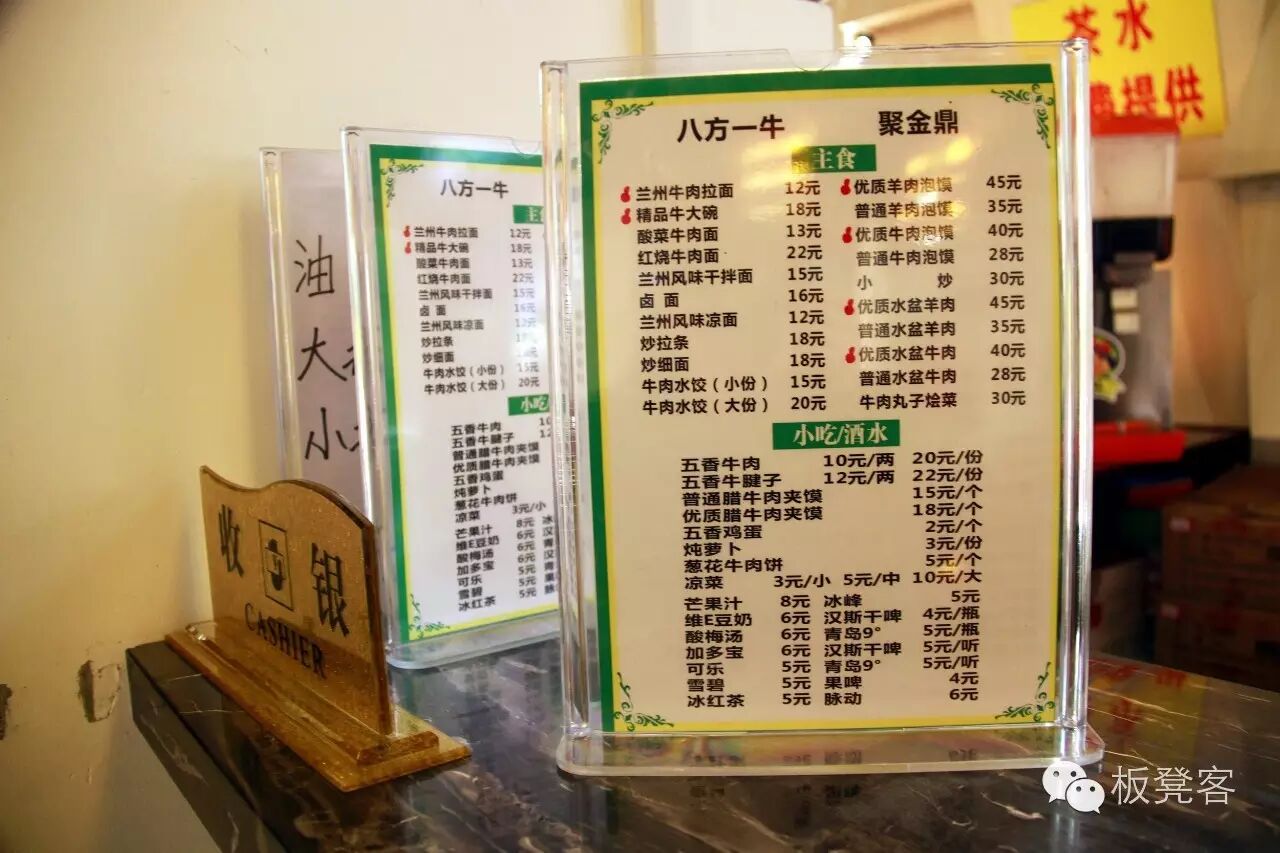 茶水
费提供
八方一牛 聚金鼎
主食
兰州牛肉拉面 12元 优质羊肉泡馍 45元
精品牛大碗 18元 普通羊肉泡馍 35元
酸菜牛肉面 13元 优质牛肉泡馍 40元
红烧牛肉面 22元 普通牛肉泡馍 28元
兰州风味干拌面 15元 小炒 30元
卤面 16元 优质水盆羊肉 45元
兰州风味凉面 12元 普通水盆羊肉 35元
炒拉条 18元 优质水盆牛肉 40元
炒细面 18元 普通水盆牛肉 28元
牛肉水饺（小份） 15元 牛肉丸子烩菜 30元
牛肉水饺（大份） 20元
小吃/酒水
五香牛肉 10元/两 20元/份
五香牛腱子 12元/两 22元/份
普通腊牛肉夹馍 15元/个
优质腊牛肉夹馍 18元/个
五香鸡蛋 2元/个
炖萝卜 3元/份
葱花牛肉饼 5元/个
凉菜 3元/小 5元/中 10元/大
芒果汁 8元 冰峰 5元
维E豆奶 6元 汉斯干啤 4元/瓶
酸梅汤 6元 青岛9° 5元/瓶
加多宝 6元 汉斯干啤 5元/听
可乐 5元 青岛9° 5元/听
雪碧 5元 果啤 4元
冰红茶 5元 脉动 6元
八方一牛
主食
兰州牛肉拉面 12元
精品牛大碗 18元
酸菜牛肉面 13元
红烧牛肉面 22元
兰州风味干拌面 15元
卤面 16元
兰州风味凉面 12元
炒拉条
炒细面
牛肉水饺（小份） 15元
牛肉水饺（大份） 20元
小吃
五香牛肉 10
五香牛腱子 12
普通腊牛肉夹馍
优质腊牛肉夹馍
五香鸡蛋
炖萝卜
葱花牛肉饼
凉菜 3元/小
芒果汁 8元 冰
维E豆奶 6元 汉
酸梅汤 6元 青
加多宝 6元 汉
可乐 5元 青
雪碧 5元 果
冰红茶 5元 脉
油
大
小
收银
CASHIER
板凳客